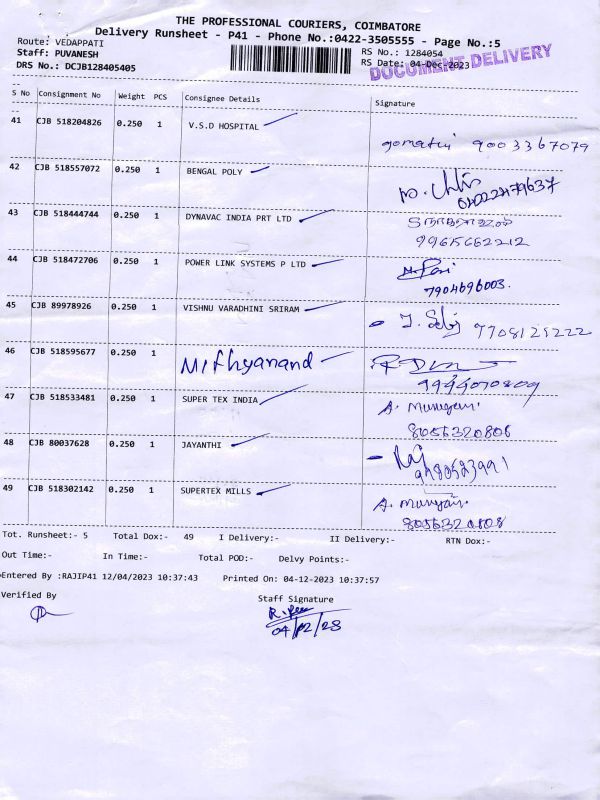 THE PROFESSIONAL COURIERS, COIMBATORE
Delivery Runsheet - P41 - Phone No.:0422-3505555 - Page No.:5
Route: VEDAPPATI
Staff: PUVANESH
DRS No.: DCJB128405405
RS No.: 1284054
RS Date: 04-Dec-2023
DOCUMENT DELIVERY
S No Consignment No Weight PCS Consignee Details Signature
41 CJB 518204826 0.250 1 V.S.D HOSPITAL
gomathi 9003367079
42 CJB 518557072 0.250 1 BENGAL POLY
43 CJB 518444744 0.250 1 DYNAVAC INDIA PRT LTD
44 CJB 518472706 0.250 1 POWER LINK SYSTEMS P LTD
7904696003.
45 CJB 89978926 0.250 1 VISHNU VARADHINI SRIRAM
7708125222
46 CJB 518595677 0.250 1 Mithyanand
47 CJB 518533481 0.250 1 SUPER TEX INDIA
A. Murugan.
8056320808
48 CJB 80037628 0.250 1 JAYANTHI
Raj
49 CJB 518302142 0.250 1 SUPERTEX MILLS
A. Murugan.
8056320808
Tot. Runsheet:- 5 Total Dox:- 49 I Delivery:- II Delivery:- RTN Dox:-
Out Time:- In Time:- Total POD:- Delvy Points:-
Entered By :RAJIP41 12/04/2023 10:37:43 Printed On: 04-12-2023 10:37:57
Verified By Staff Signature
04/12/23